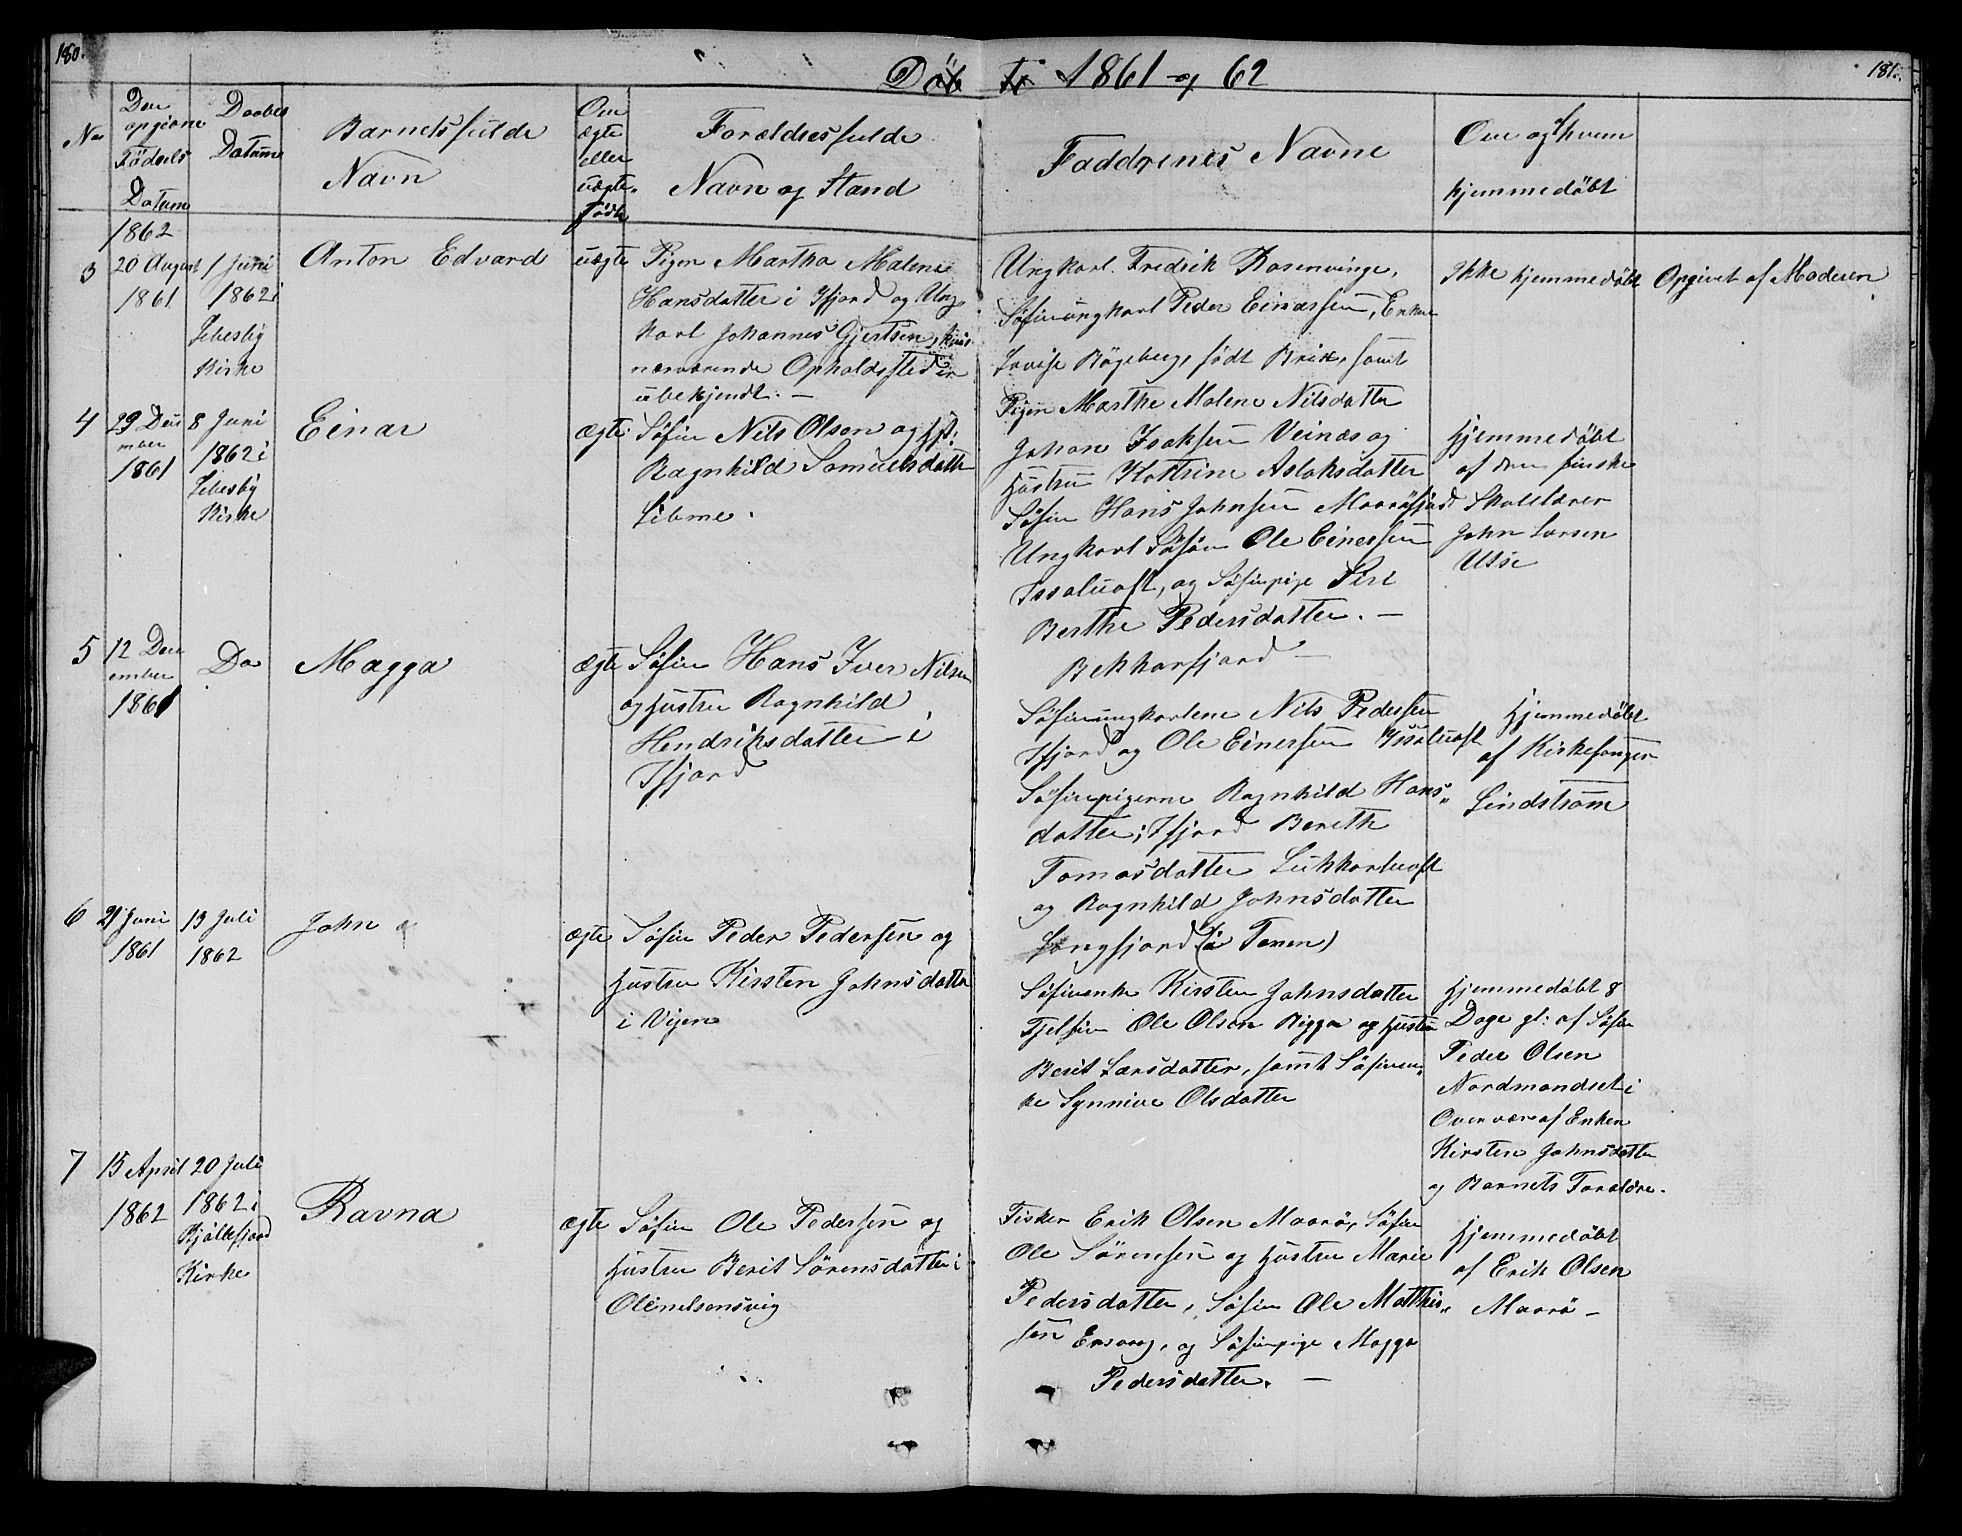 180.
181.
Döb
1861 og 62
No
Den
opgivne
Födsels
Datum
Daabs
Datum
Barnets fulde
Navn
Om
ægte
eller
uægte
födt
Forældres fulde
Navn og Stand
Faddrenes Navne
Om og af hvem
hjemmedöbt
1862
3
20 August
1861
1 Juni
1862 i
Lebesby
Kirke
Anton Edvard
uægte
Pigen Martha Malene
Hansdatter i Ifjord og Ung
karl Johannes Gjertsen, hvis
nærværende Opholdssted er
ubekjendt. —
Ungkarl. Fredrik Rosenvinge,
Söfinungkarl Peder Einarsen, Enken
Lovise Bögeberg, födt Brix, samt
Pigen Marthe Malene Nilsdatter
Ikke hjemmedöbt
Opgivet af Moderen
4
29 Dec
mber
1861
8 Juni
1862 i
Lebesby
Kirke
Einar
ægte
Söfin Nils Olsen og Hst:
Ragnhild Samuelsdatter
Lebme.
Johan Isaksen Veinæs og
Hustru Kathrine Aslaksdatter
Söfin Hans Johnsen Maaröfjord
Ungkarl Söfin Ole Einersen
Issoluoft, og Söfinpige Siri
Berthe Pedersdatter. —
Bekkarfjord —
Hjemmedöbt
af den finske
Skolelærer
John Larsen
Utsi
5
12 Dec
ember
1861
Do
Magga
ægte
Söfin Hans Iver Nilsen
og Hustru Ragnhild
Hendriksdatter i
Ifjord
Söfinungkarlene Nils Pedersen
Ifjord og Ole Einersen Issoluoft
Söfinpigerne Ragnhild Hans„
datter, Ifjord Bereth
Tomasdatter Lukkarluoft
og Ragnhild Johnsdatter
Langfjord (i Tanen)
Hjemmedöbt
af Kirkesanger
Lindström
6
21 Juni
1861
13 Juli
1862
John
ægte
Söfin Peder Pedersen og
Hustru Kirsten Johnsdatter
i Vigen
Söfinenke Kirsten Johnsdatter
Fjelfin Ole Olsen Bigga og Hustru
Berit Larsdatter, samt Söfinen„
ke Synnive Olsdatter
Hjemmedöbt 8
Dage gl: af Söfin
Peder Olsen
Nordmandset i
Overvær af Enken
Kirsten Johnsdatter
og Barnets Forældre.
7
15 April
1862
20 Juli
1862 i
Kjöllefjord
Kirke
Ravna
ægte
Söfin Ole Pedersen og
Hustru Berit Sörensdatter i
Olenilsensvig
Fisker Erik Olsen Maarö, Söfin
Ole Sörensen og Hustru Marie
Pedersdatter, Söfin Ole Matthis„
sen og Söfinpige Magga
Pedersdatter. —
Hjemmedöbt
af Erik Olsen
Maarö —